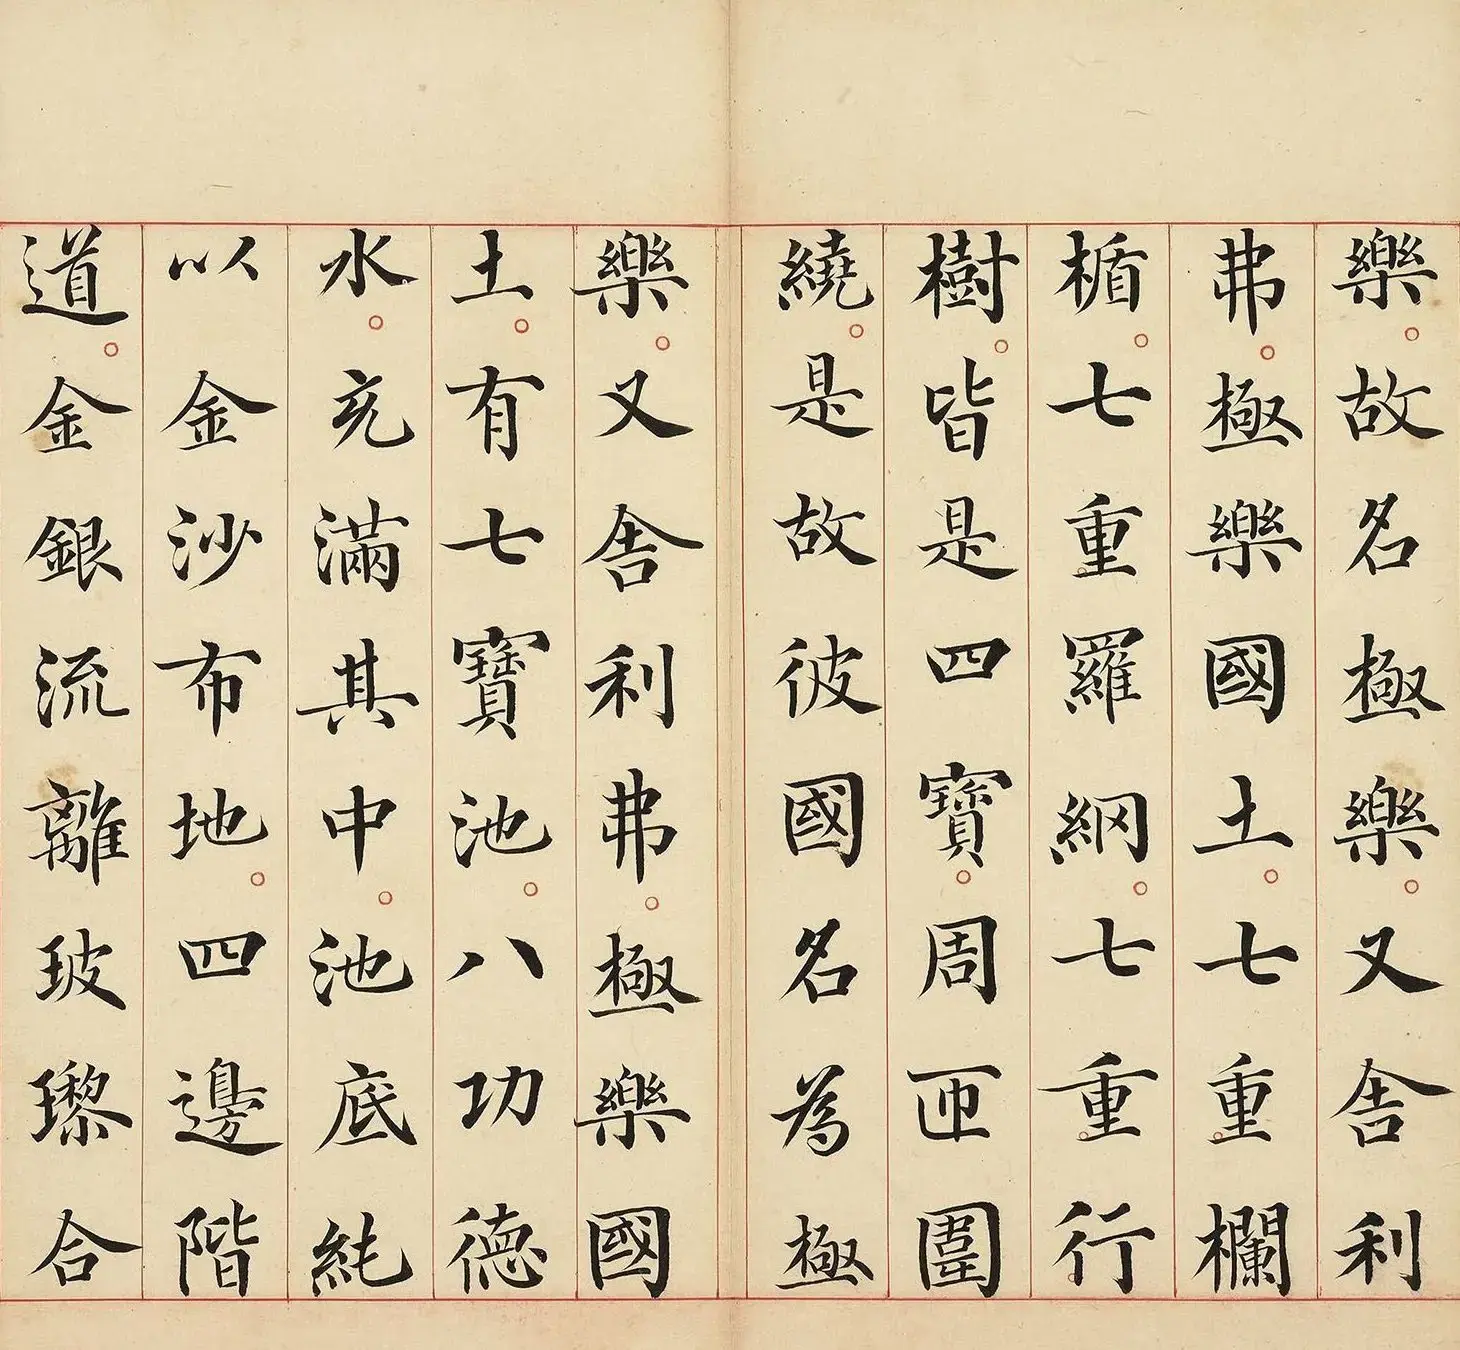 樂。故名極樂。又舎利
弗。極樂國土。七重欄
楯。七重羅網。七重行
樹。皆是四寶。周匝圍
繞。是故彼國名為極
樂。又舎利弗。極樂國
土。有七寶池。八功德
水。充滿其中。池底純
以金沙布地。四邊階
道。金銀流離玻瓈合